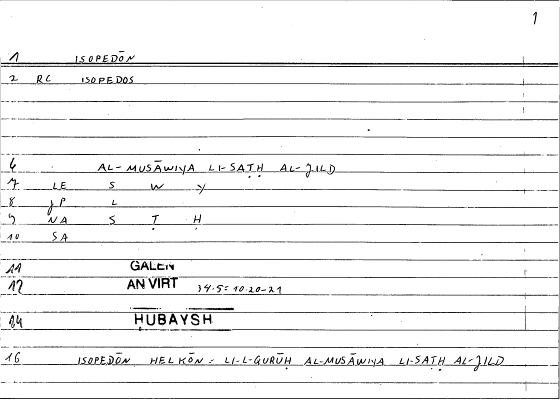 1
1 ISOPEDŌN
2 RC ISOPEDOS
6 AL-MUSĀWIYA LI-SAṬḤ AL-JILD
7 LE S W Y
8 JP L
9 NA S Ṭ Ḥ
10 SA
11 GALEN
12 AN VIRT 34.5=10.20-21
14 ḤUBAYSH
16 ISOPEDŌN HELKŌN = LI-L-QURŪḤ AL-MUSĀWIYA LI-SAṬḤ AL-JILD